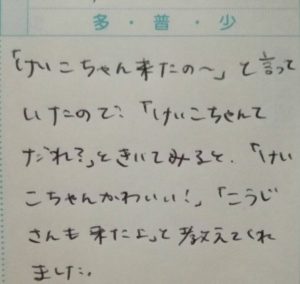 多・普・少
「けいこちゃん来たの〜」と言って
いたので、「けいこちゃんて
だれ?」ときいてみると、「けい
こちゃんかわいい!」「こうじ
さんも来たよ」と教えてくれ
ました。